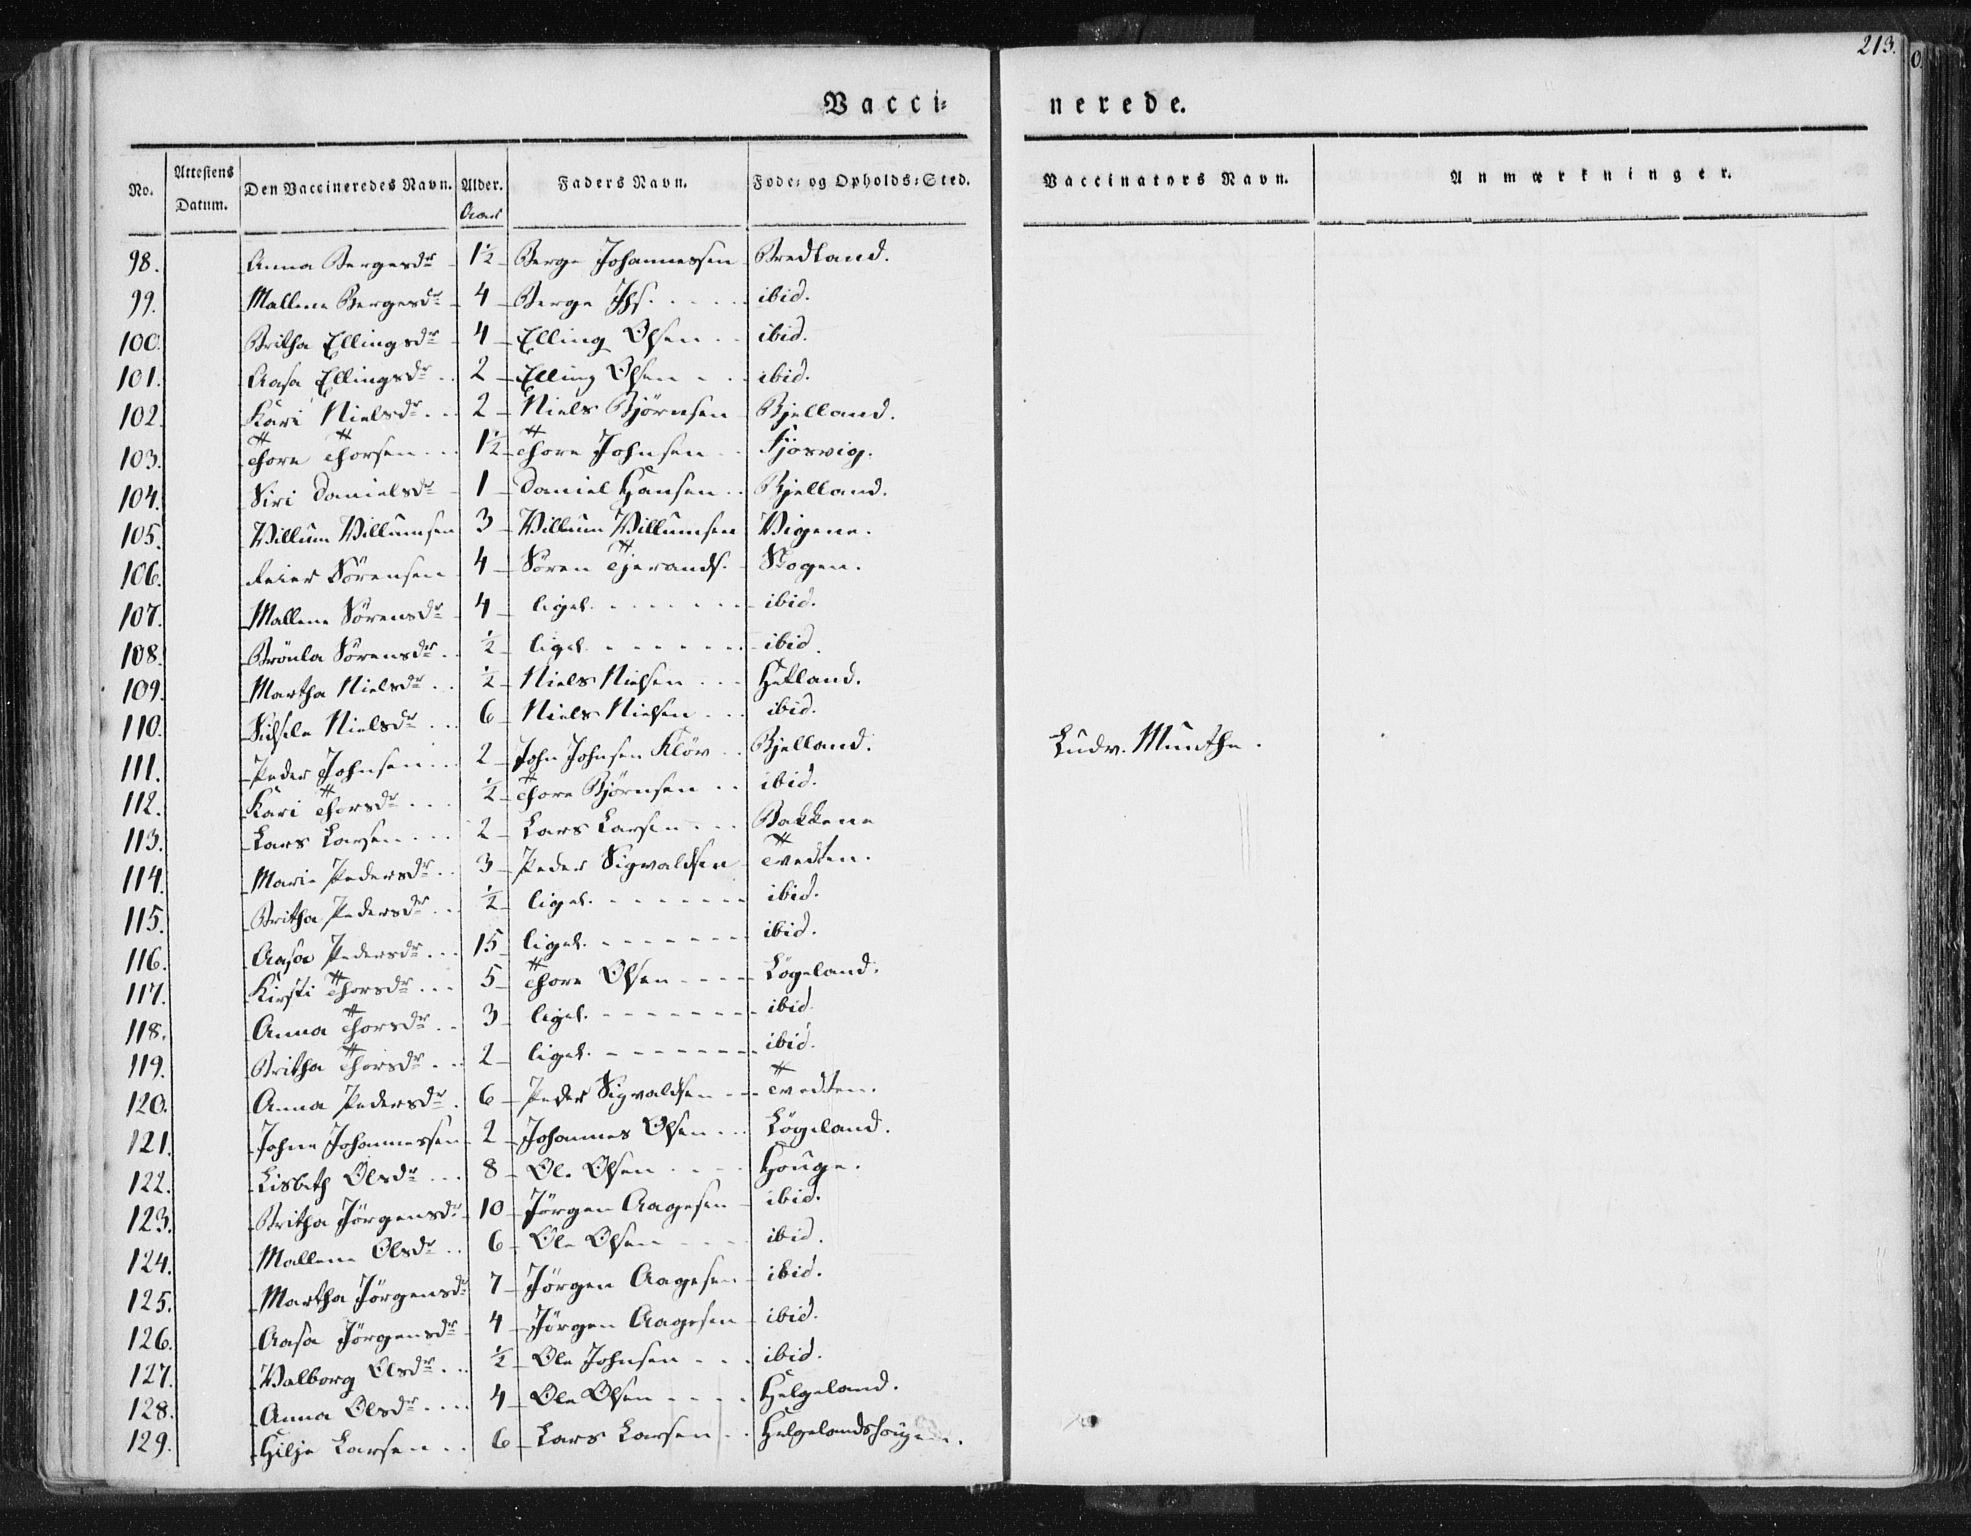 213.
Vacci- nerede.
No. Attestens Datum. Den Vaccineredes Navn. Alder. Aar Faders Navn. Føde- og Opholds-Sted. Vaccinators Navn. Anmærkninger.
98. Anna Bergesdr 1½ Berge Johannessen Bredland.
99. Mallene Bergesdr 4 Berge Jhs. ibid.
100. Britha Ellingsdr 4 Elling Olsen ibid.
101. Aasa Ellingsdr 2 Elling Olsen ibid.
102. Kari Nielsdr 2 Niels Bjørnsen Bjelland.
103. Thore Thorsen 1½ Thore Johnsen Fjösvig.
104. Siri Danielsdr 1 Daniel Hansen Bjelland.
105. Villum Villumsen 3 Villum Villumsen Vigene.
106. Reier Sørensen 4 Søren Tjerands. Skogen.
107. Mallene Sørensdr 4 liget. ibid.
108. Brönla Sørensdr ½ liget. ibid.
109. Martha Nielsdr ½ Niels Nielsen Hetland.
110. Sidsele Nielsdr 6 Niels Nielsen ibid.
111. Peder Johnsen 2 John Johnsen Kløv Bjelland. Ludv. Munthe.
112. Kari Thorsdr ½ Thore Bjørnsen ibid.
113. Lars Larsen 2 Lars Larsen Bakkene
114. Marie Pedersdr 3 Peder Sigvaldsen Tvedten.
115. Britha Pedersdr ½ liget. ibid.
116. Aasa Pedersdr 15 liget. ibid.
117. Kirsti Thorsdr 5 Thore Olsen Lögeland.
118. Anna Thorsdr 3 liget. ibid.
119. Britha Thorsdr 2 liget. ibid.
120. Anna Pedersdr 6 Peder Sigvaldsen Tvedten.
121. Johne Johannessen 2 Johannes Olsen Lögeland.
122. Lisbeth Olsdr 8 Ole Olsen Houge.
123. Britha Jørgensdr 10 Jørgen Aagesen ibid.
124. Mallene Olsdr 6 Ole Olsen ibid.
125. Martha Jørgensdr 7 Jørgen Aagesen ibid.
126. Aasa Jørgensdr 4 Jørgen Aagesen ibid.
127. Valborg Olsdr ½ Ole Johnsen ibid.
128. Anna Olsdr 4 Ole Olsen Helgeland.
129. Hilje Larsen 6 Lars Larsen Helgelandshougen.